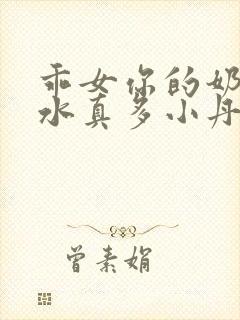 乖女你的奶
水真多小丹
曾素娟